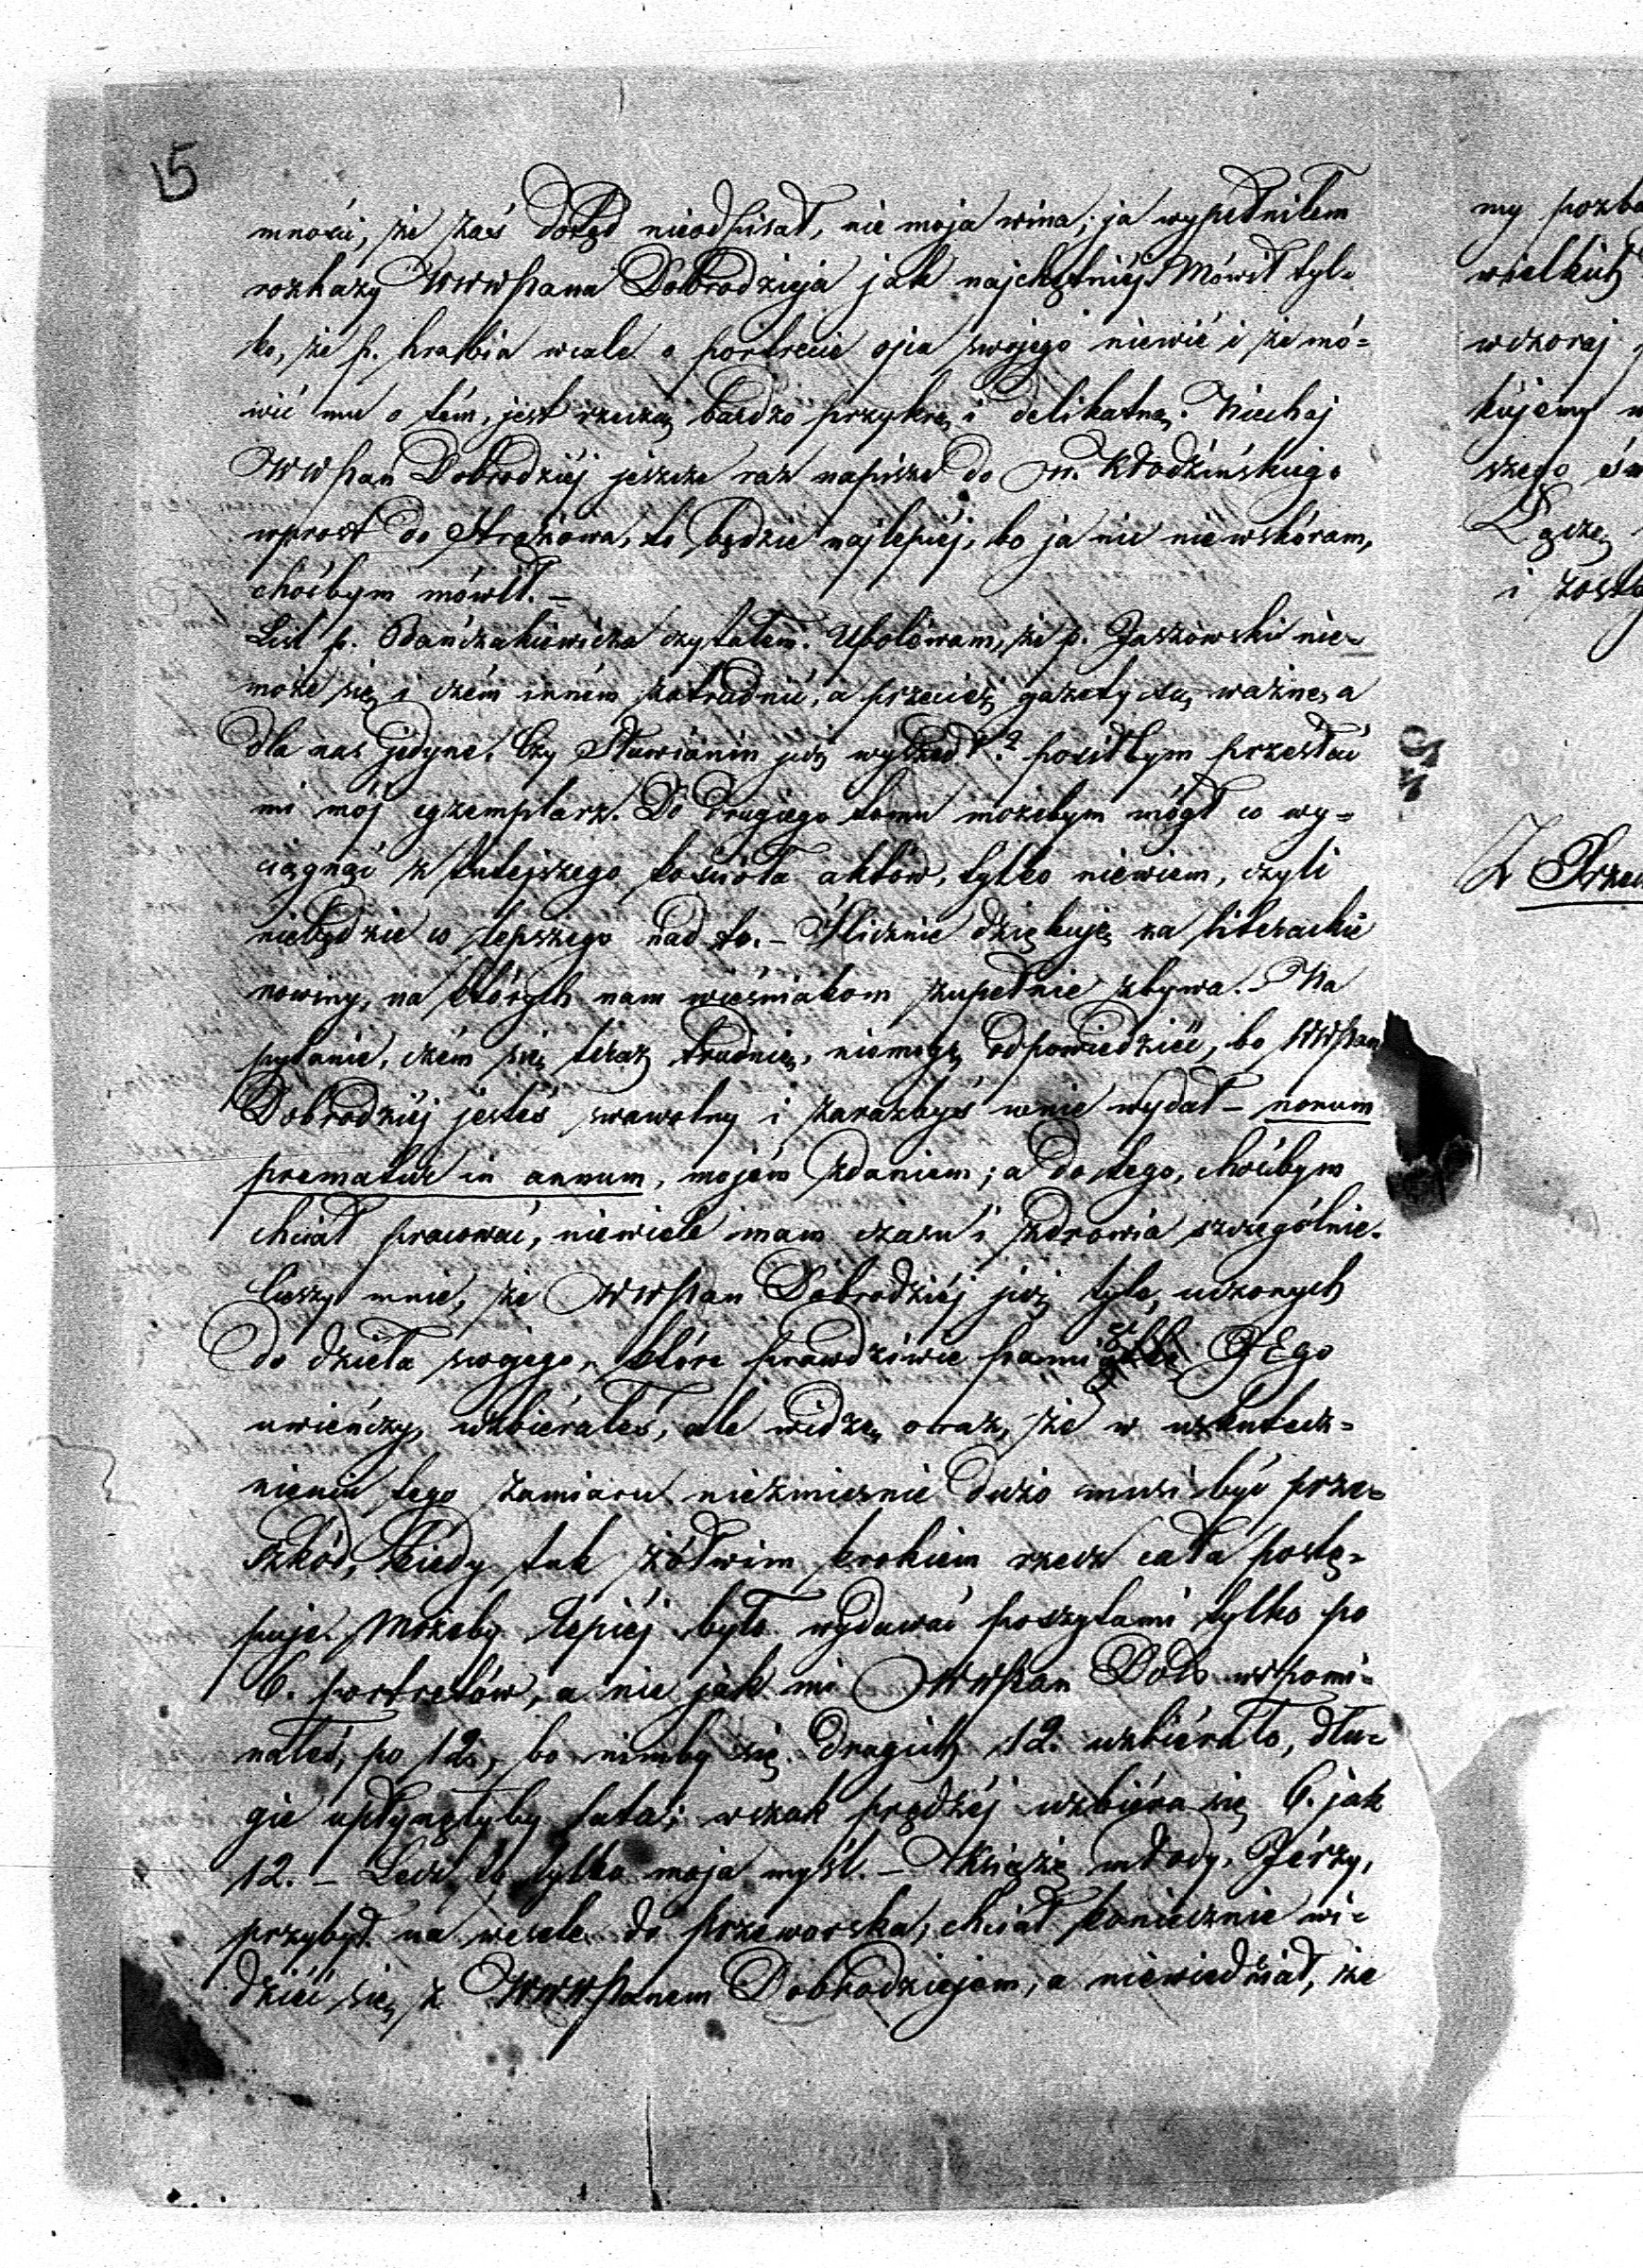 15
mności, że zaś dotąd nieodpisał, nie moja wina; ja wypełniłem
rozkazy WWWPana Dobrodzieja jak najchętniej. Mówił tyl-
ko, że p. hrabia wcale o portrecie ojca swojego niewié i że mó=
wić mu o tém, jest rzeczą bardzo przykrą i delikatną. Niechaj
WWPan Dobrodziéj jeszcze raz napisze do JP. Kłodzińskiego
wprost do Strażowa, to będzie najlepiéj, bo ja nic niewskóram,
choćbym mówił. –
List p. Bańczakiewicza czytałem. Ubolewam, że p. Jaszowski nie=
może się i czém inném zatrudnić, a przecież gazety są ważne, a
dla nas jedyne. Czy Sławianin już wyszedł? posiłbym przesłać
mi mój egzemplarz. Do drugiego tomu możebym mógł co wy=
ciągnąć z tutejszego kościoła aktów, tylko niewiem, czyli
niebędzie co lepszego nad to. – Ślicznie dziękuję za literackie
nowiny, na których nam wieśniakom zupełnie zbywa. – Na
pytanie, czém się teraz trudnię, niemogę odpowiedzieć, bo WWPan
Dobrodziéj jesteś swawolny i zarazbyś mnie wydał – nonum
prematur in annum, mojém zdaniem; a do tego, choćbym
chciał pracować, niewiele mam czasu i zdrowia szczególnie.
Cieszy mnie, że WWPan Dobrodziéj już tylo uczonych
do dzieła swojego, które prawdziwie pamięć JEgo
uwieńczy, uzbiérałeś, ale widzę oraz, że w uskutecz=
nieniu tego zamiaru niezmiernie dużo musi być prze=
szkód, kiedy tak żółwim krokiem rzecz cała postę=
puje. Możeby lepiéj było wydawać poszytami tylko po
6. portretów, a nie jak mi WWPan Dob. wspomi=
nałeś, po 12., bo nimby się drugich 12. uzbiérało, dłu=
gie upłynęłyby lata; wszak prędzéj uzbiéra się 6. jak
12. – Lecz to tylko moja myśl. – Książę młody, Jérzy,
przybył na wesele do Przeworska, chciał koniecznie wi=
dzieć się z WWWPanem Dobrodziejem, a niewiedział, że
my pozba
wielkich
wczoraj
kujemy
szego
Łączę
i zosta
Z Przew